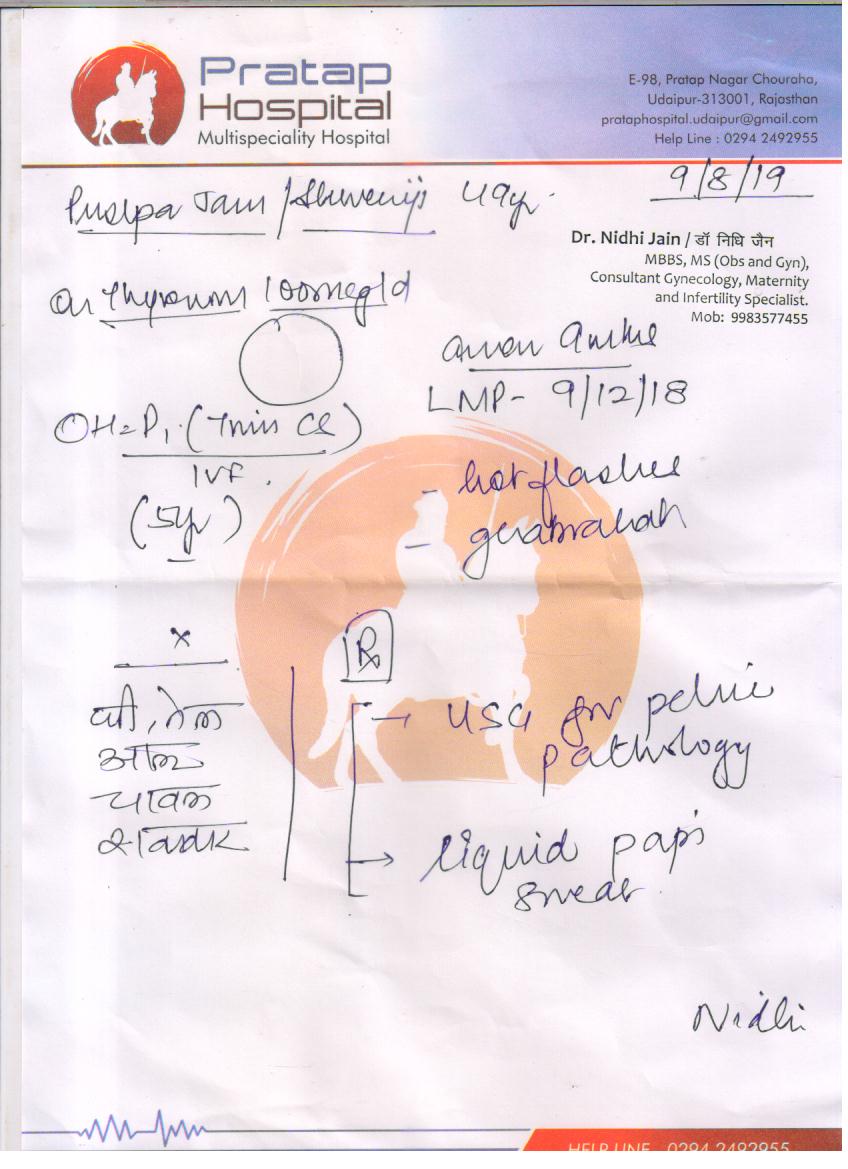 Pratap
Hospital
Multispeciality Hospital
E-98, Pratap Nagar Chouraha,
Udaipur-313001, Rajasthan
prataphospital.udaipur@gmail.com
Help Line : 0294 2492955
9/8/19
Puspa Jain / 49yr
Dr. Nidhi Jain / डॉ निधि जैन
MBBS, MS (Obs and Gyn),
Consultant Gynecology, Maternity
and Infertility Specialist.
Mob: 9983577455
On Thyronorm 100mcg 1d
LMP- 9/12/18
OH = P1 (Twin CS)
IVF.
(5yr)
- hot flashes
- ghabrahah
x
Rx
घी, तेल
आलू
चावल
शक्कर
→ USG for pelvic
pathology
→ liquid pap's
smear
Nidhi
HELP LINE 0294 2492955